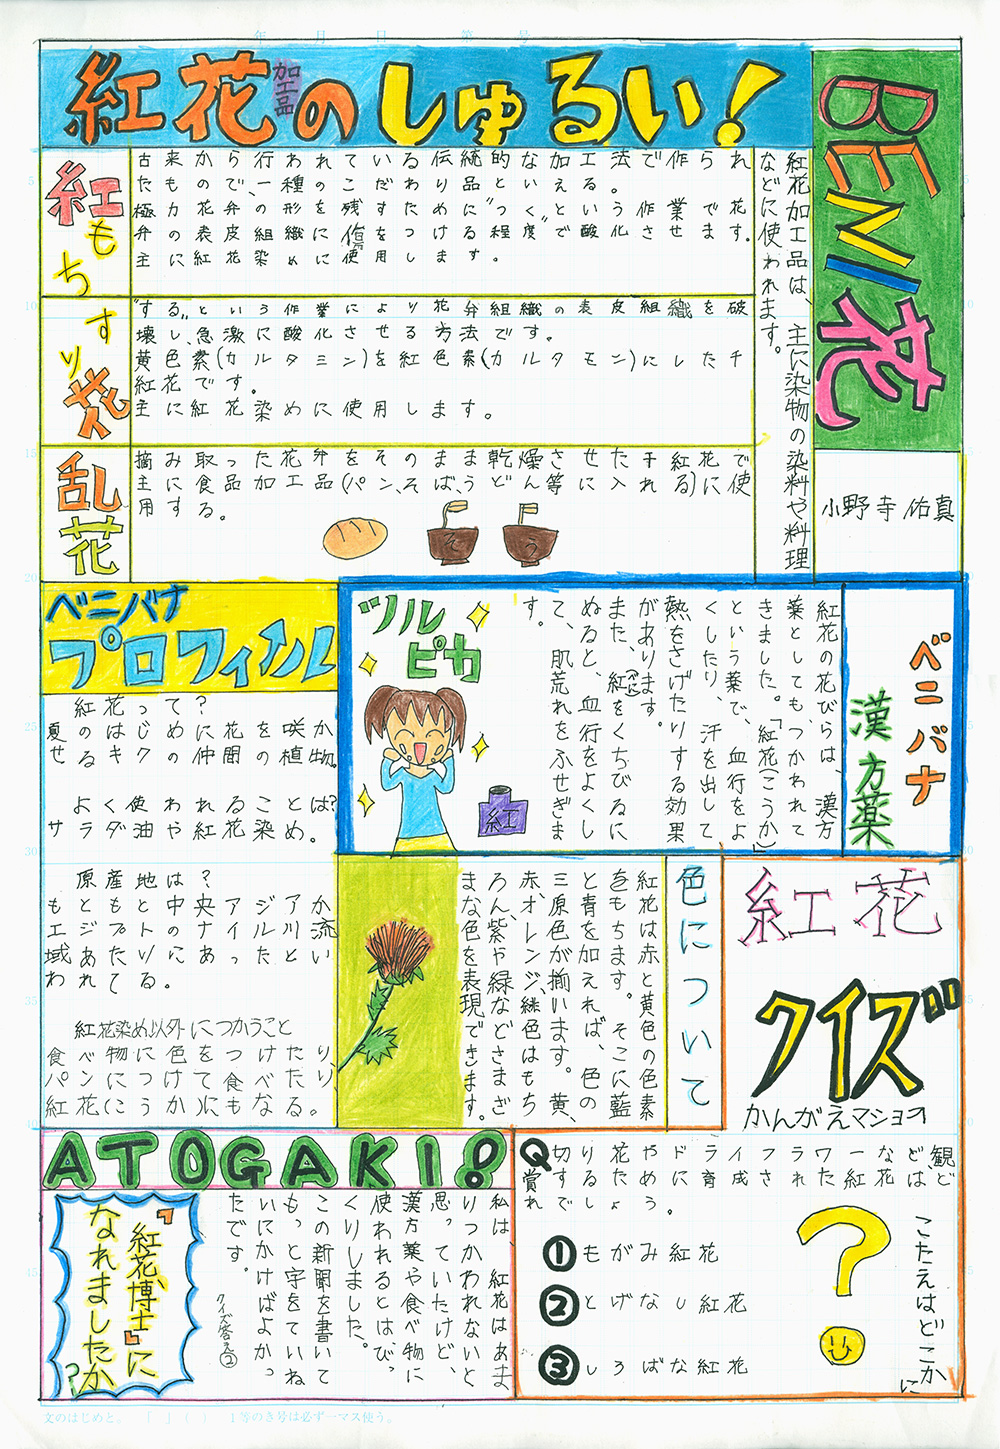 年 月 日 第 号
BENI花
紅花の加工品しゅるい！
小野寺佑真
紅花加工品は、主に染物の染料や料理
などに使われます。
紅もち
古来から行われている伝統的な加工法で作られ
たもので、一種のこだわり品といえる。
極力花弁の形を残すために〝つく〟という作業で花
弁の表皮組織に傷をつける程度で酸化させます。
主に紅花染めに使用します。
すり花
〝する〟という作業により花弁組織の表皮組織を破
壊し、急激に酸化させる方法です。
黄色素(カルタミン)を紅色素(カルタモン)にした千
紅花です。
主に紅花染めに使用します。
乱花
摘み取った花弁をそのまま乾燥させた干紅花で
主に食品加工品(パン、そば、うどん等に入れる)に使
用する。
そ
う
ベニバナ
漢方薬
紅花の花びらは、漢方
薬としても、つかわれて
きました。「紅花(こうか)」
という薬で、血行をよ
くしたり、汗を出して
熱をさげたりする効果
があります。
また、紅(べに)をくちびるに
ぬると、血行をよくし
て、肌荒れをふせぎま
す。
ツルピカ
紅
ベニバナ
プロフィール
紅花って？
夏のはじめに花を咲か
せるキクの仲間の植物。
よく使われることは？
サラダ油や紅花染め。
原産地は？
もともと中央アジアか
エジプトのナイル川流
域あたりにあったとい
われてる。
紅花染め以外につかうこと
食べ物に色をつけたり
パンにつけて食べたり、
紅花(こうか)にもなる。
色について
紅花は赤と黄色の色素
をもちます。そこに藍
と青を加えれば、色の
三原色が揃います。黄、
赤、オレンジ、緑色はもち
ろん、紫や緑などさまざ
まな色を表現できます。
紅花
クイズ
かんがえマショウ
Q
観賞
などは
ドライフラワー
切花や
どれでしょう。
①もがみ紅花
②とげなし紅花
③しろばな紅花
？
こたえはどこかに
ATOGAKI!
私は、紅花はあま
りつかわれないと
思っていたけど、
漢方薬や食べ物に
使われるとは、びっ
くりしました。
この新聞を書いて
もっと字をていね
いにかけばよかっ
たです。
クイズ答え②
『紅花博士』に
なれましたか？
文のはじめと。「」()！等のき号は必ず一マス使う。